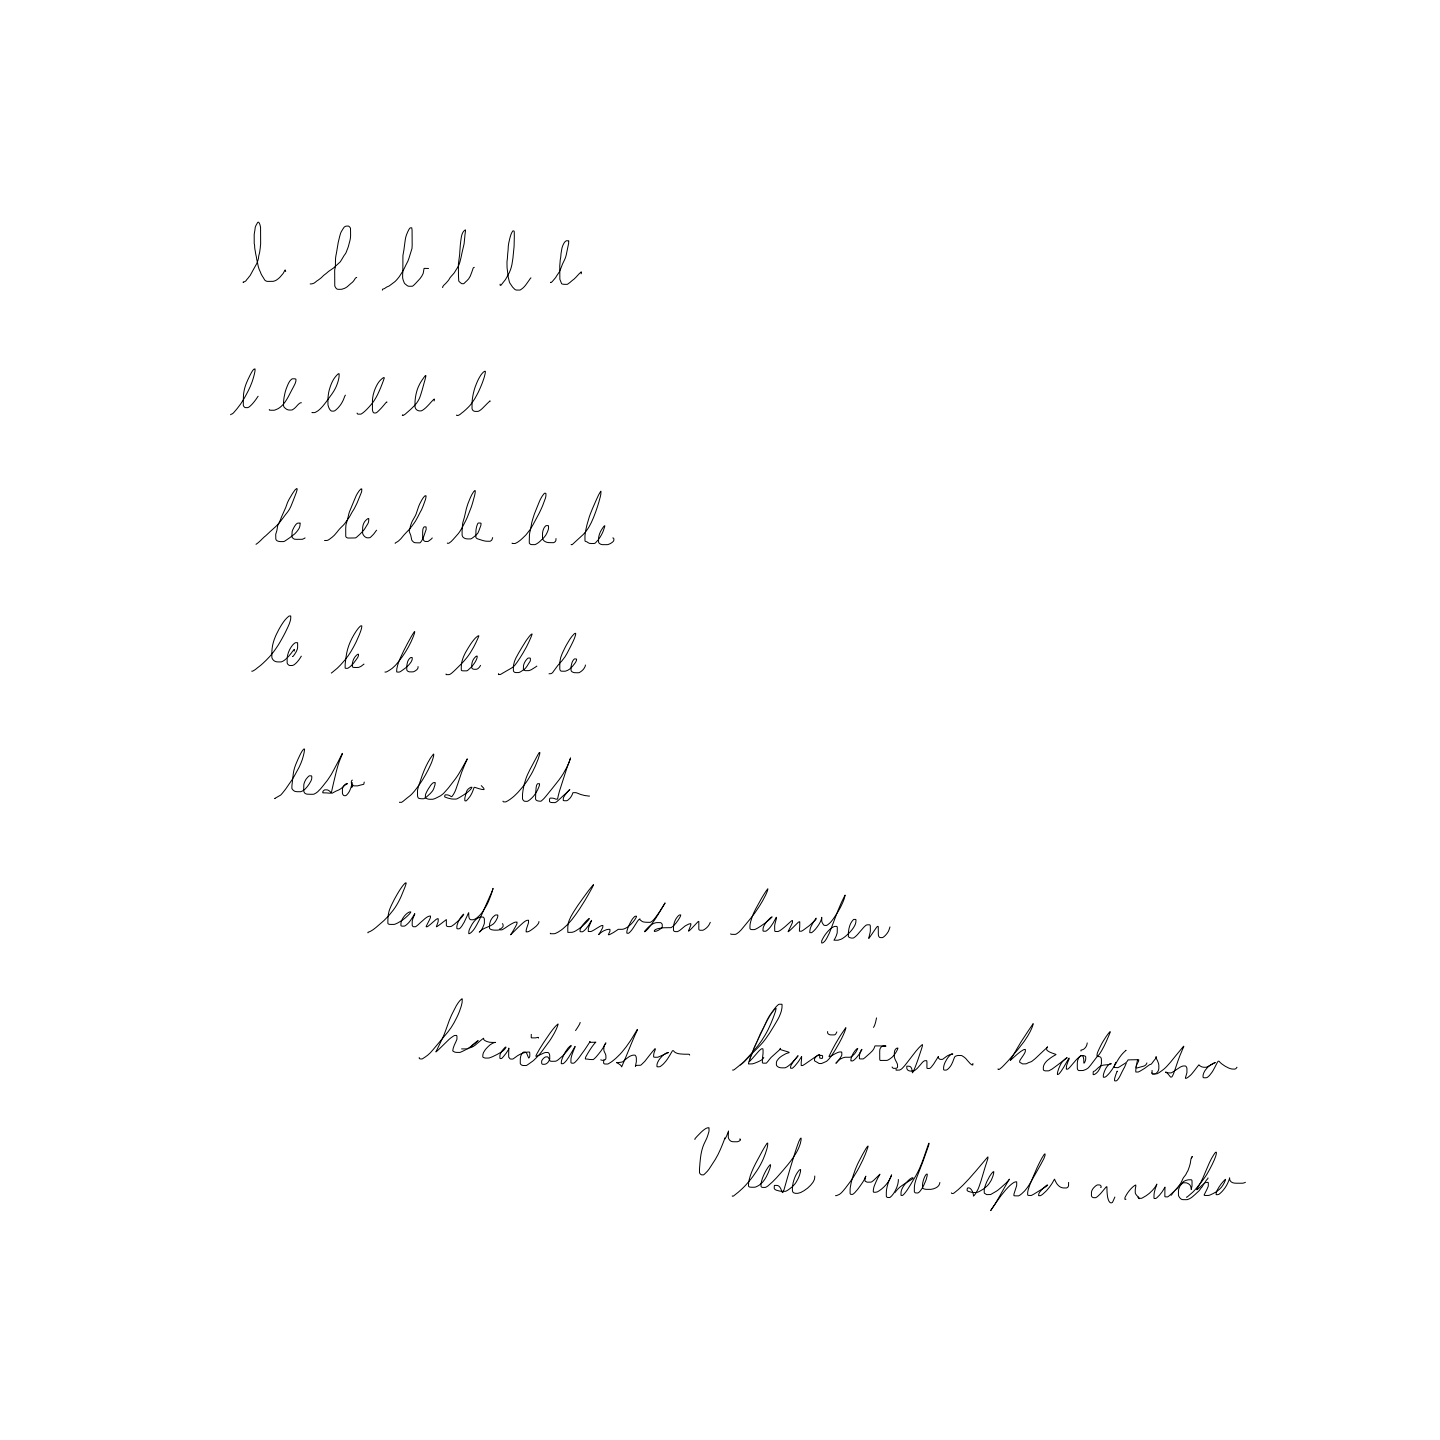 l l l l l l
l l l l l l
le le le le le le
le le le le le le
leto leto leto
lamohen lamohen lanohen
hračkárstvo hračkárstvo hračkárstvo
V lese bude teplo a